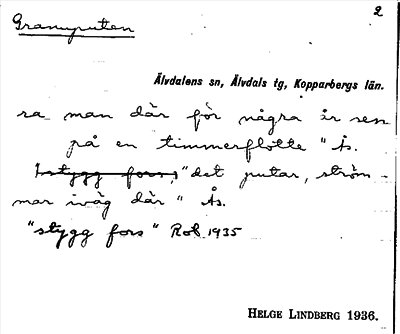 Granuputten
2
Älvdalens sn, Älvdals tg, Kopparbergs län.
ra man där för några år sen
på en timmerflötte" Ås.
stygg fors, "det putar, ström-
mar iväg där" Ås.
"stygg fors" Rob. 1935
HELGE LINDBERG 1936.